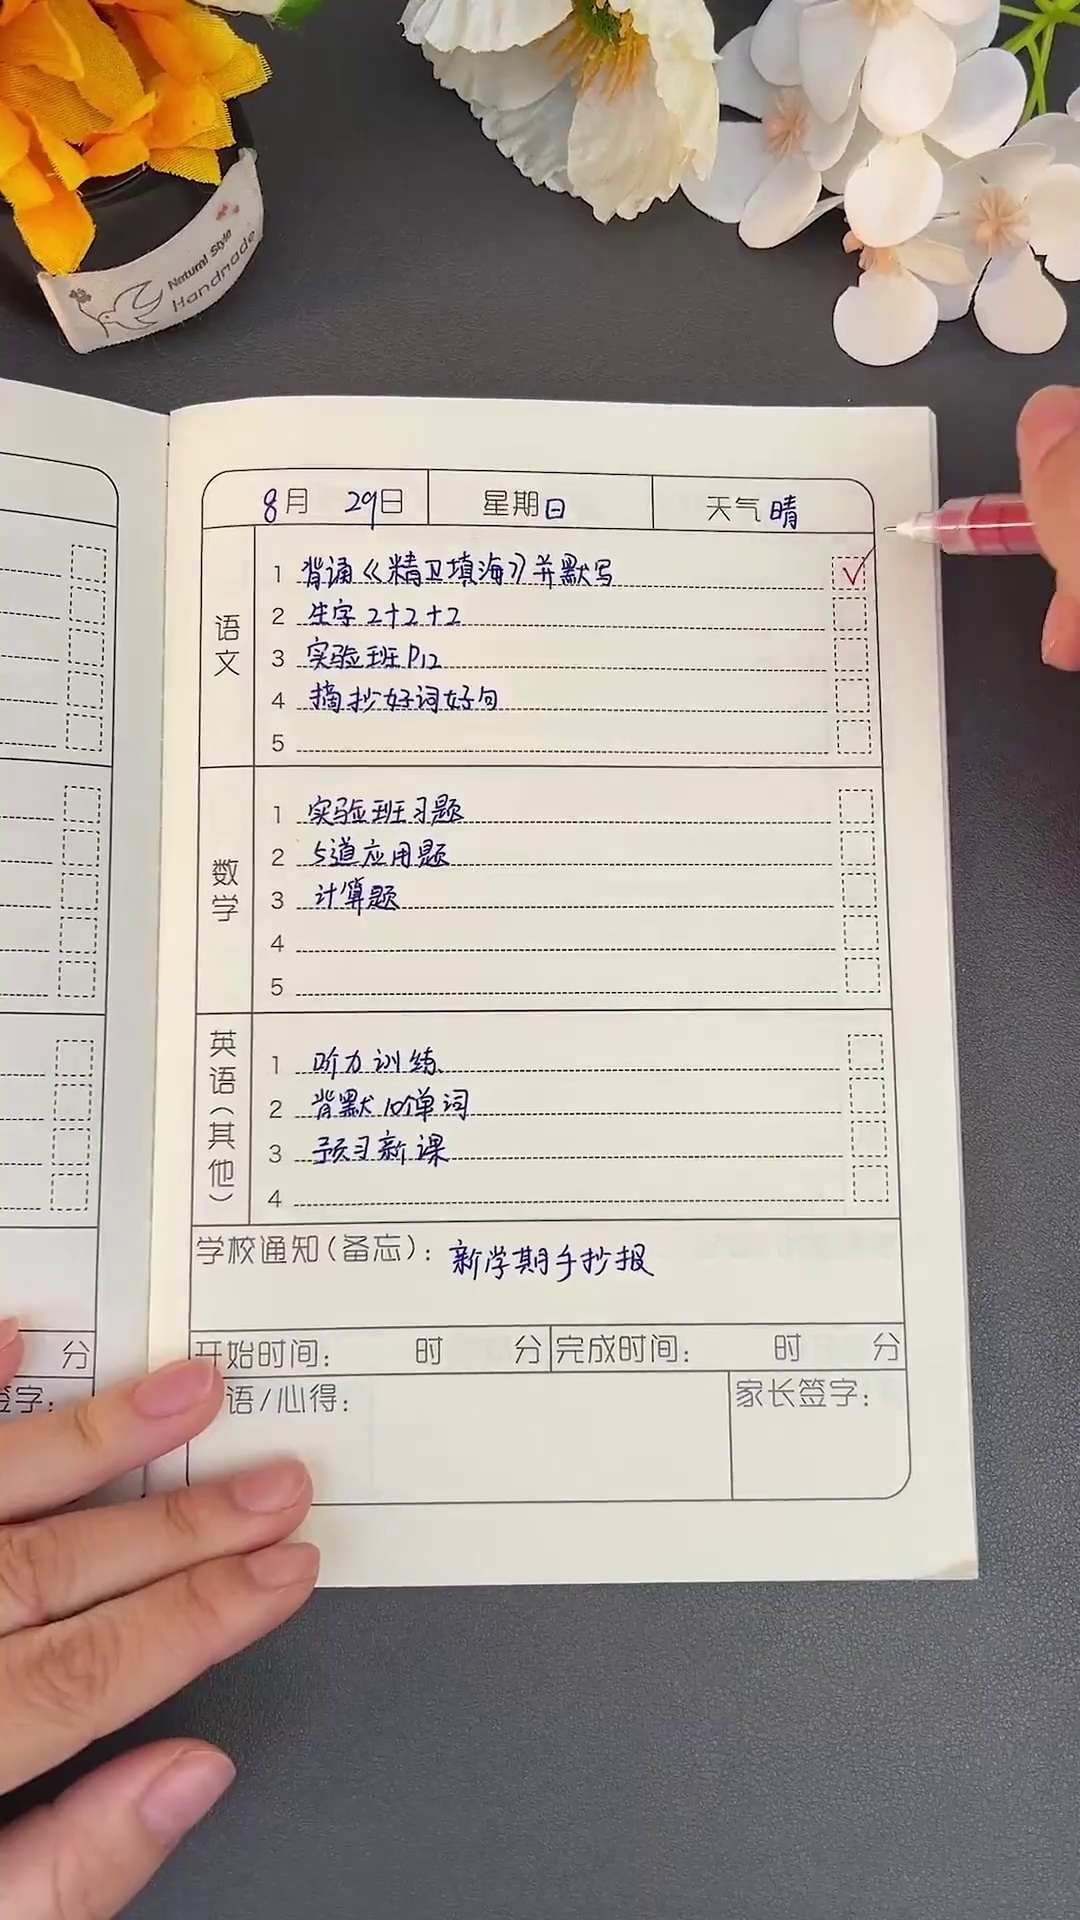 Natural Style
Handmade
8月 29日 星期日 天气 晴
语文
1 背诵《精卫填海》并默写 √
2 生字 2+2+2
3 实验班 P12
4 摘抄好词好句
5
数学
1 实验班习题
2 5道应用题
3 计算题
4
5
英语(其他)
1 听力训练
2 背默10个单词
3 预习新课
4
学校通知(备忘): 新学期手抄报
分 开始时间: 时 分 完成时间: 时 分
签字: 语/心得: 家长签字: